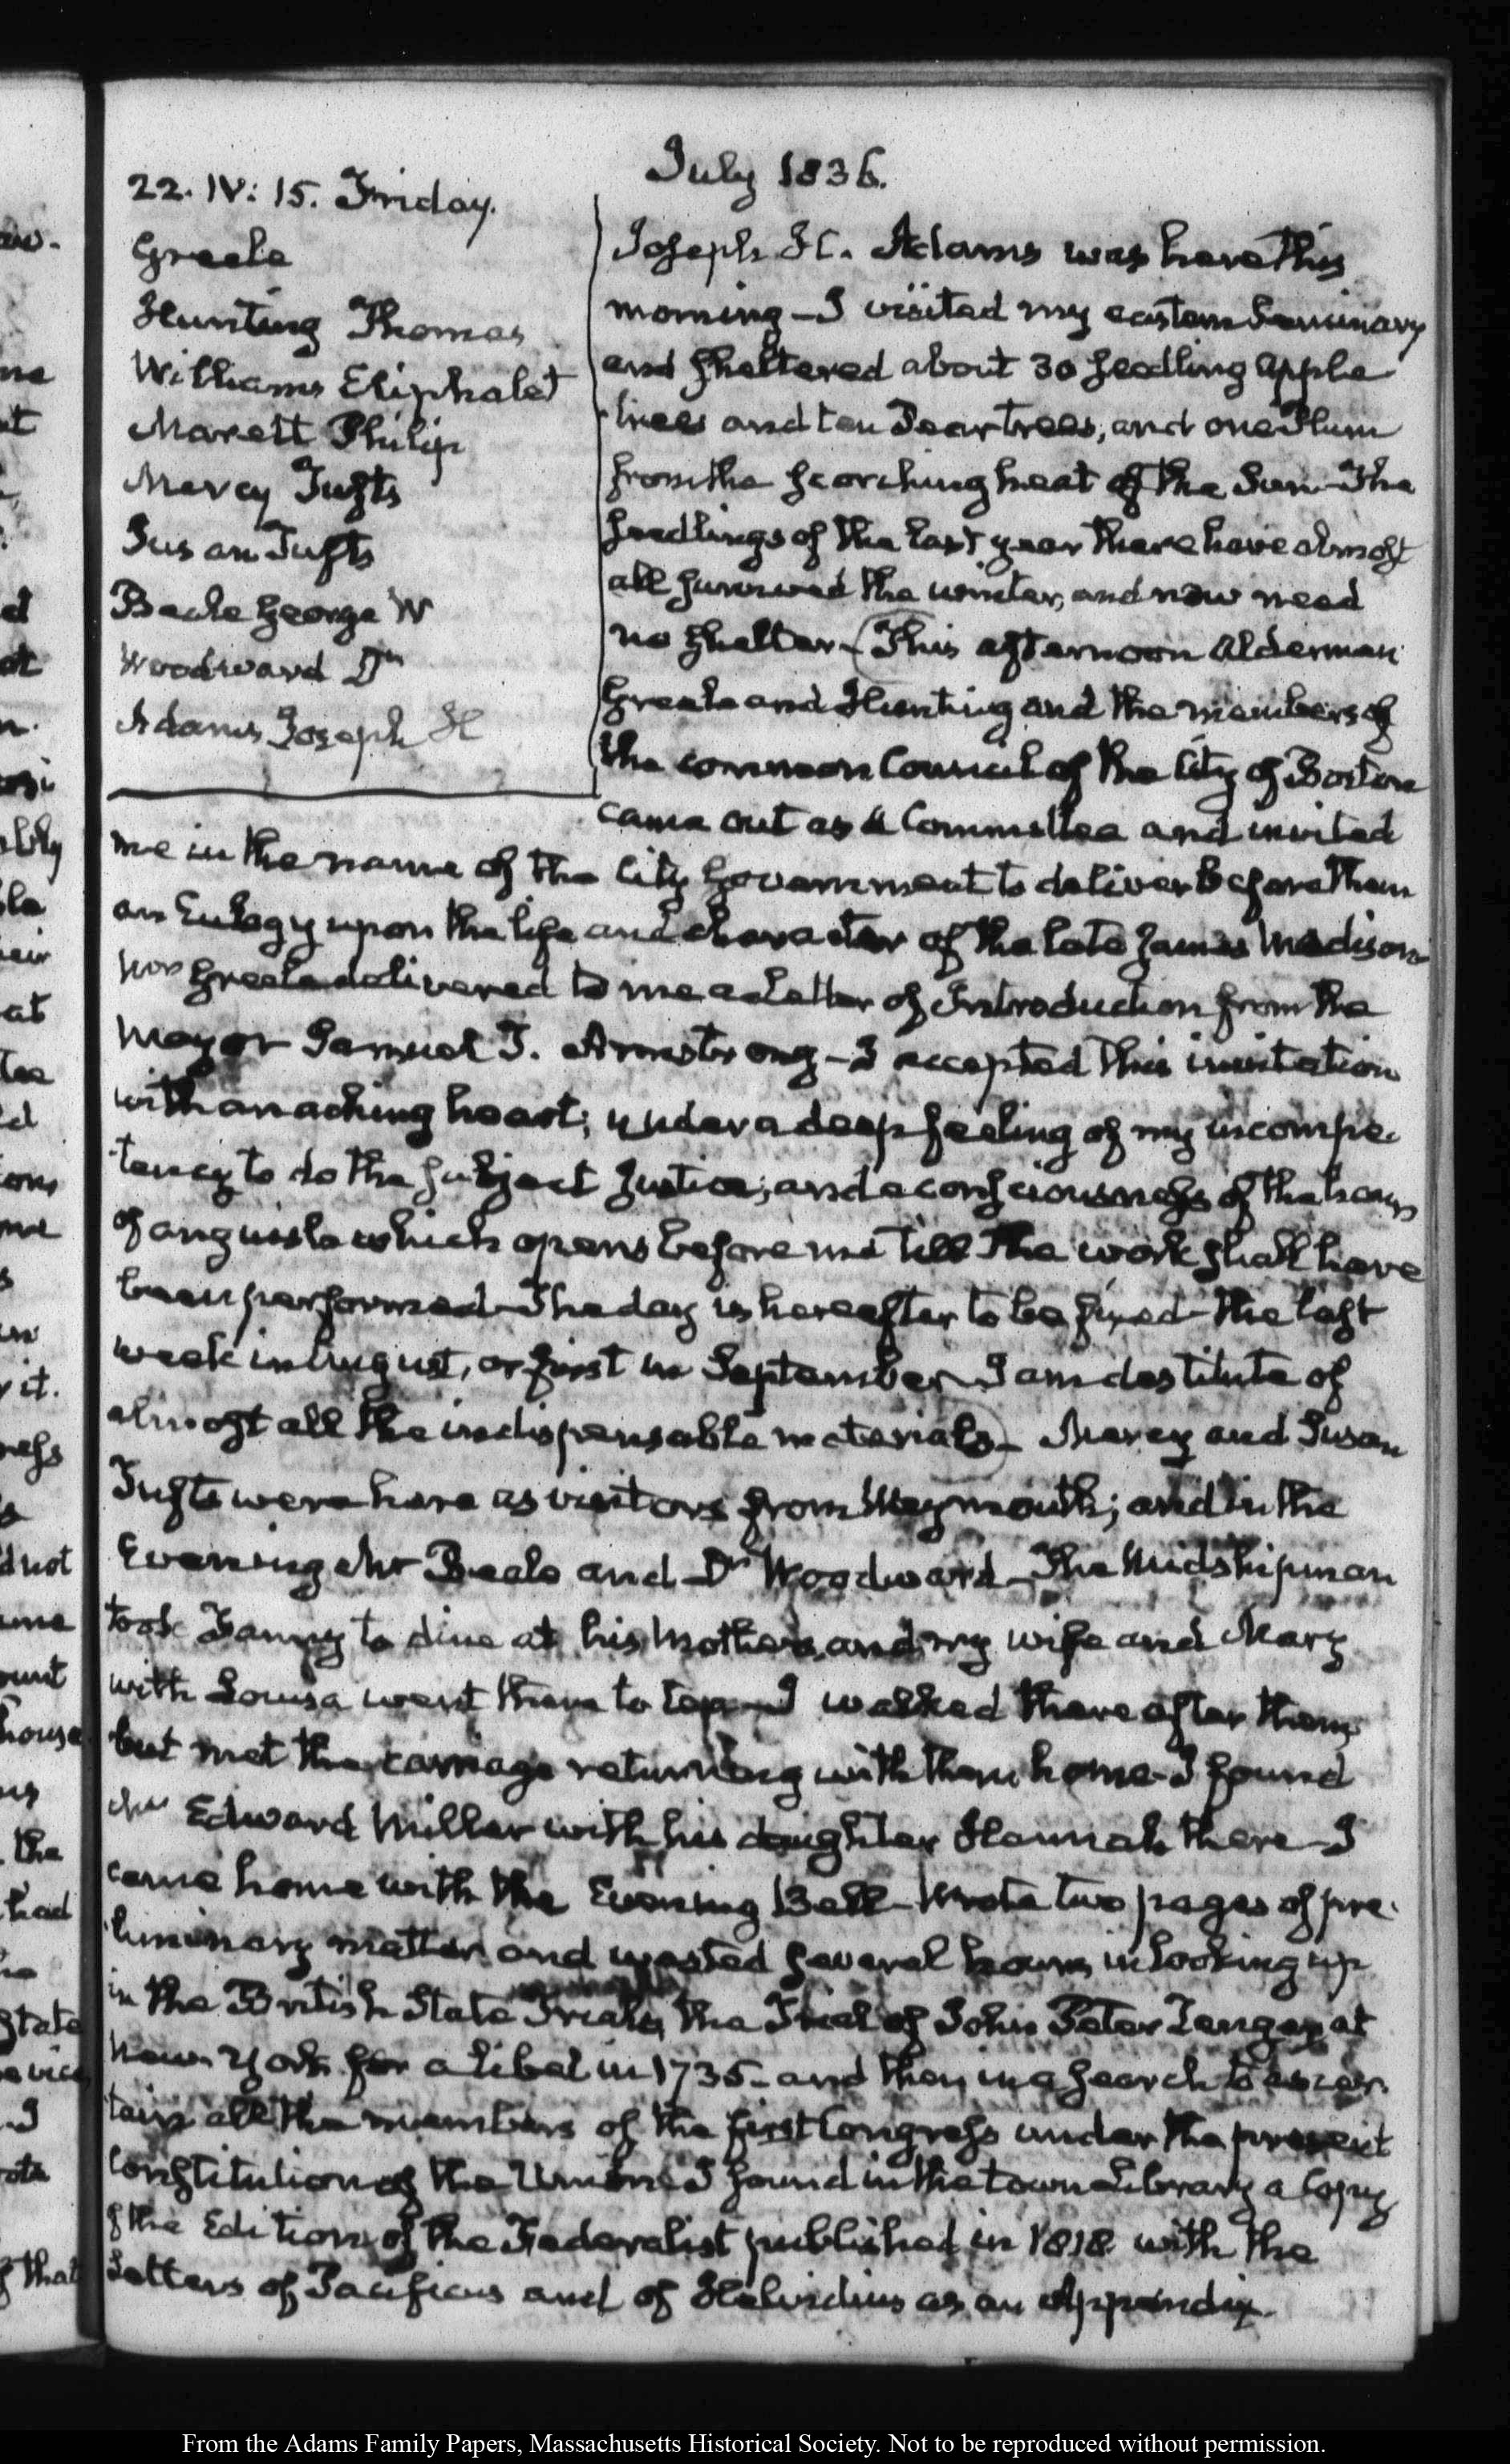 July 1836.
22. IV: 15. Friday.
Greele
Hunting Thomas
Williams Eliphalet
Marett Philip
Mercy Tufts
Susan Tufts
Beale George W
Woodward Dr
Adams Joseph H
Joseph H. Adams was here this
morning – I visited my eastern Seminary
and sheltered about 30 seedling apple
trees and ten Pear trees, and one Plum
from the scorching heat of the Sun – The
seedlings of the last year there have almost
all survived the winter, and now need
no shelter – (This afternoon Alderman
Greele and Hunting and the members of
the common Council of the City of Boston
came out as a Committee and invited
me in the name of the City Government to deliver before them
an Eulogy upon the life and character of the late James Madison
Mr Greele delivered to me a Letter of Introduction from the
Mayor Samuel T. Armstrong – I accepted this invitation
with an aching heart; under a deep feeling of my incompe-
tency to do the subject justice; and a consciousness of the hours
of anguish which opens before me till the work shall have
been performed – The day is hereafter to be fixed – the last
week in August, or first in September – I am destitute of
almost all the indispensable materials) – Mercy and Susan
Tufts were here as visitors from Weymouth; and in the
Evening Mr Beale and Dr Woodward – The Midshipman
took Fanny to dine at his Mother's, and my wife and Mary
with Louisa went there to tea – I walked there after them,
but met the carriage returning with them home – I found
Mr Edward Miller with his daughter Hannah there – I
came home with the Evening Bell – Wrote two pages of pre-
liminary matter and wasted several hours in looking up
in the British State Trials, the Trial of John Peter Zenger at
New York for a libel in 1735 – and then in a search to ascer-
tain all the members of the first Congress under the present
Constitution of the Union – I found in the town Library a Copy
of the Edition of the Federalist published in 1818 with the
Letters of Pacificus and of Helvidius as an Appendix.
From the Adams Family Papers, Massachusetts Historical Society. Not to be reproduced without permission.